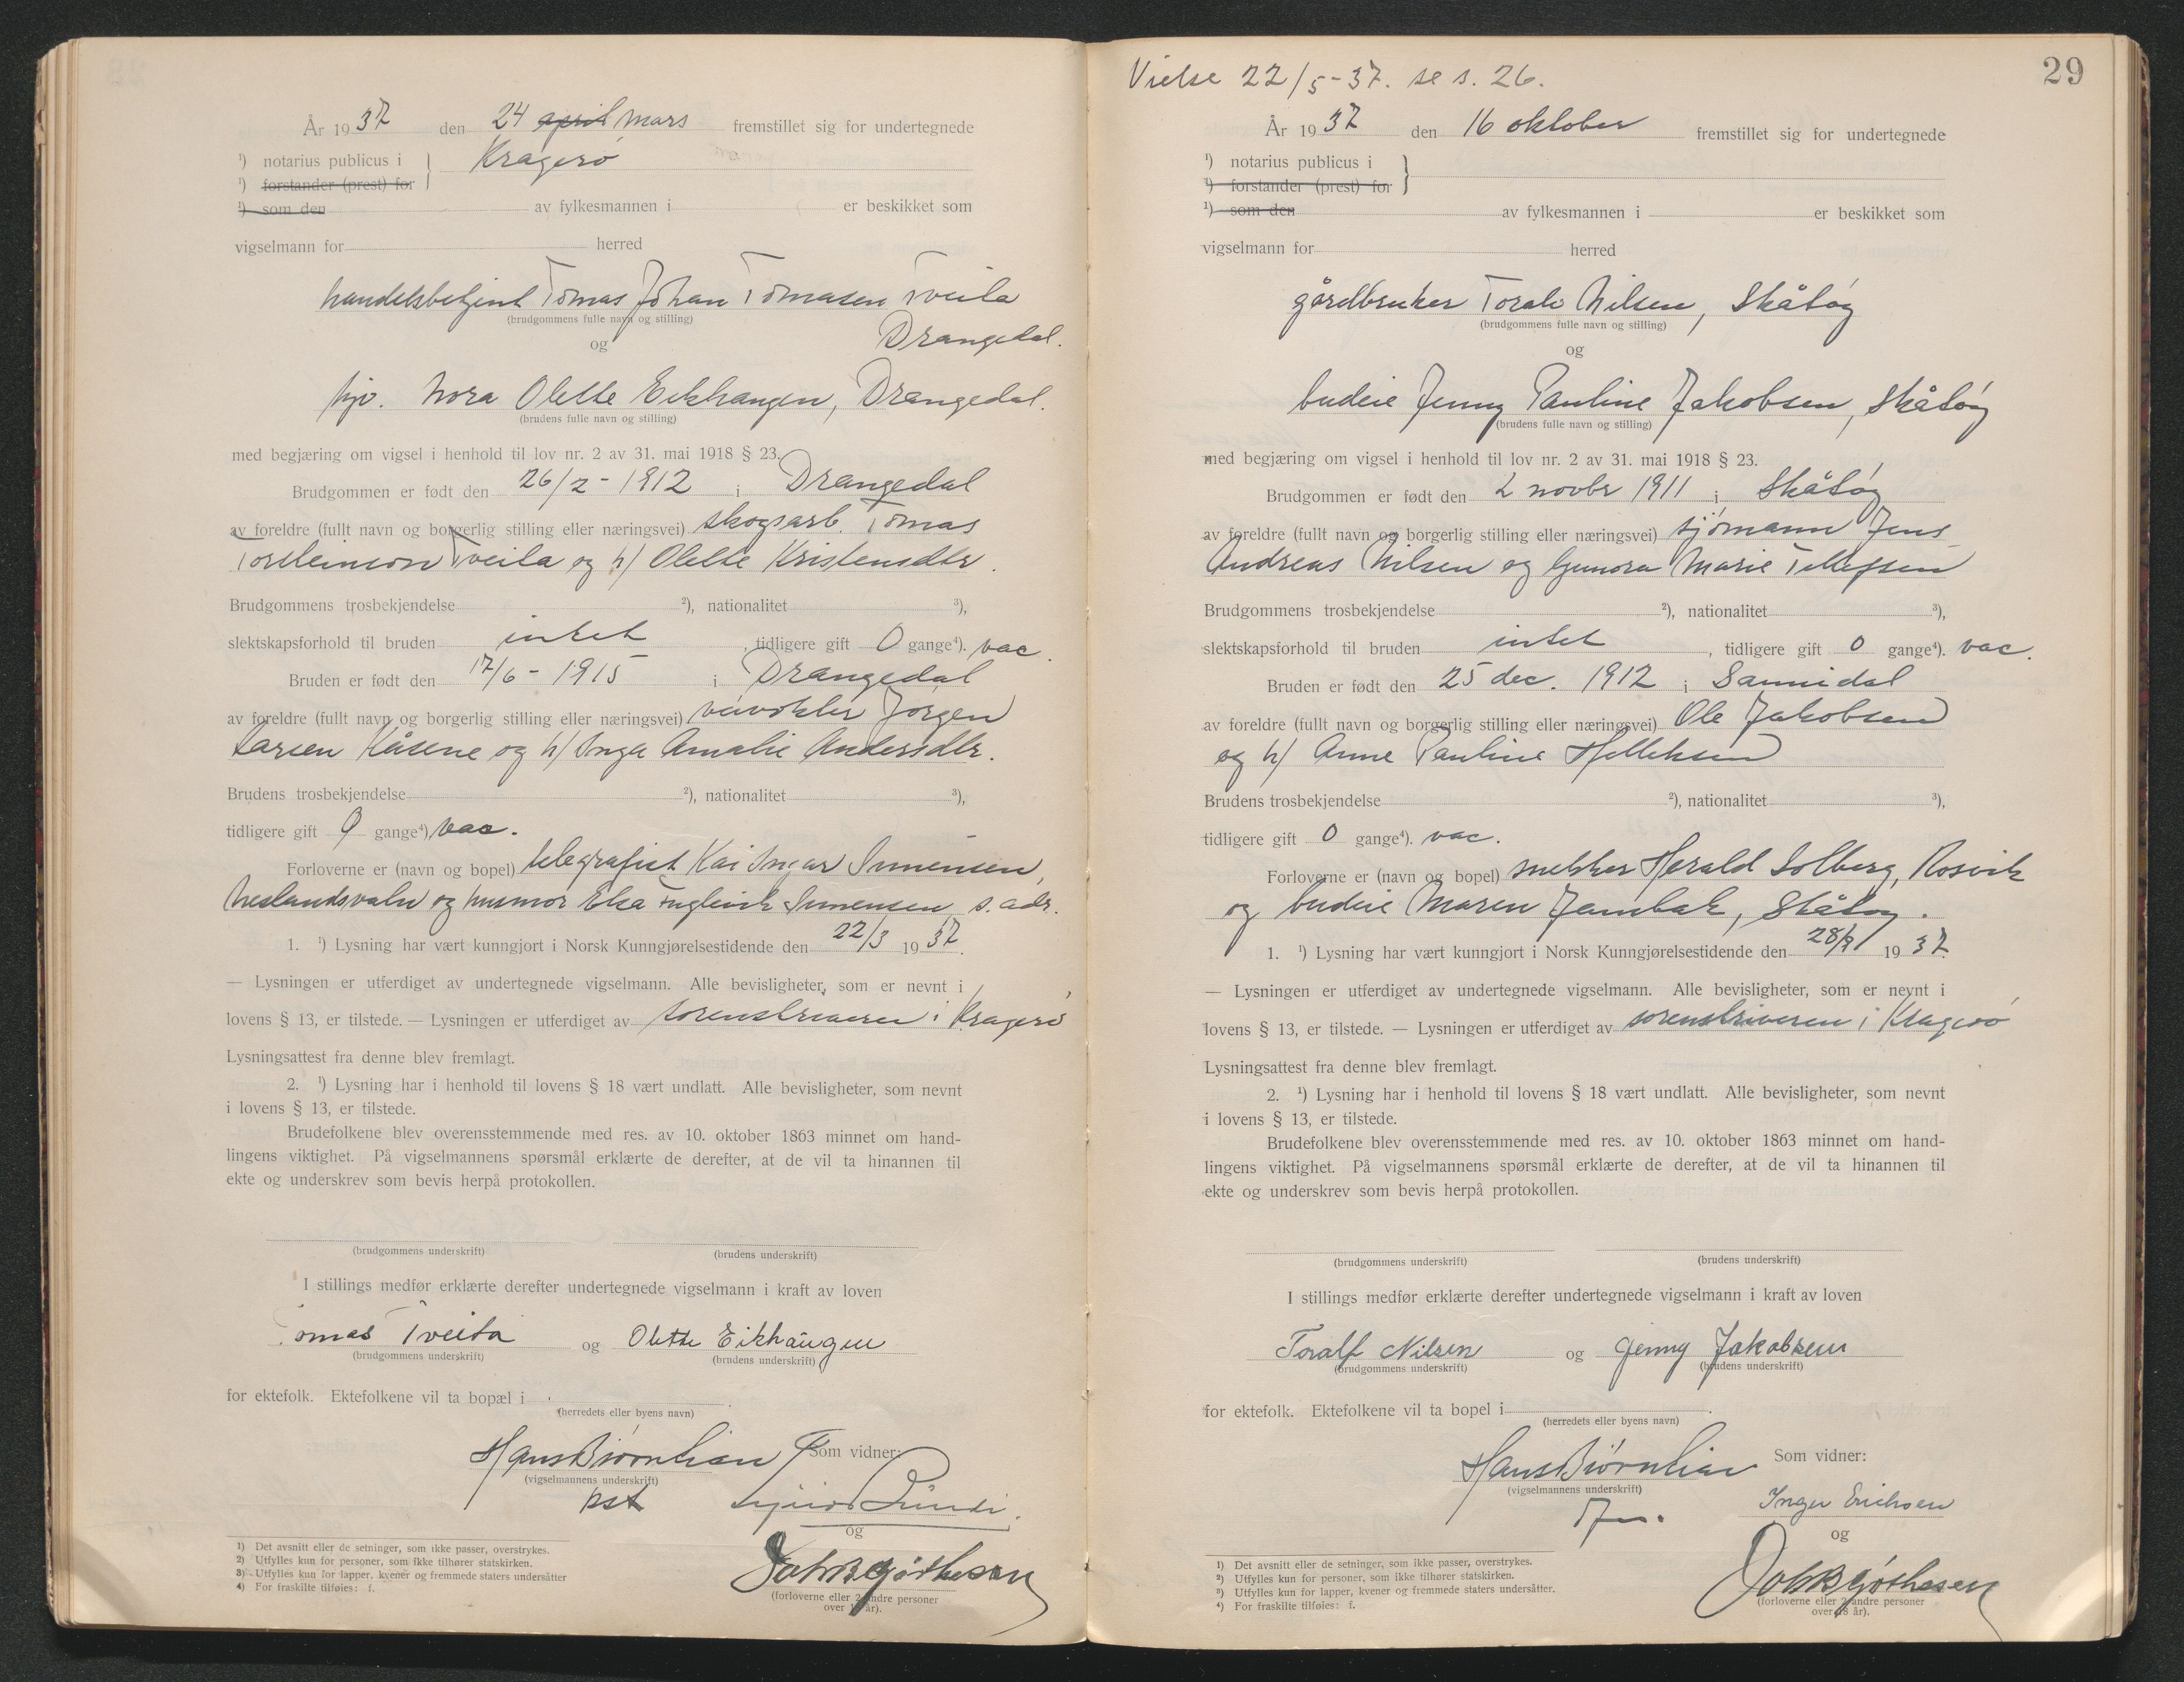 År 1937 den 24 april mars fremstillet sig for undertegnede
¹) notarius publicus i Kragerø
¹) forstander (prest) for
¹) som den av fylkesmannen i er beskikket som
vigselmann for herred
handelsbetjent Tomas Johan Tomasen Tveita
(brudgommens fulle navn og stilling)
Drangedal.
og
hjv. Nora Olette Eikhaugen, Drangedal.
(brudens fulle navn og stilling)
med begjæring om vigsel i henhold til lov nr. 2 av 31. mai 1918 § 23.
Brudgommen er født den 26/2 - 1912 i Drangedal
av foreldre (fullt navn og borgerlig stilling eller næringsvei) skogsarb. Tomas
Torsteinson Tveita og h/ Olette Kristensdtr.
Brudgommens trosbekjendelse ²), nationalitet ³),
slektskapsforhold til bruden intet , tidligere gift 0 gange⁴). vac.
Bruden er født den 17/6 - 1915 i Drangedal
av foreldre (fullt navn og borgerlig stilling eller næringsvei) veivokter Jørgen
Larsen Kåsene og h/ Inga Amalie Andersdtr.
Brudens trosbekjendelse ²), nationalitet ³),
tidligere gift 0 gange⁴) vac.
Forloverne er (navn og bopel) telegrafist Kai Immensen,
Neslandsvatn og husmor Elsa Immensen s. adr.
1. ¹) Lysning har vært kunngjort i Norsk Kunngjørelsestidende den 22/3 1937.
— Lysningen er utferdiget av undertegnede vigselmann. Alle bevisligheter, som er nevnt i
lovens § 13, er tilstede. — Lysningen er utferdiget av sorenskriveren i Kragerø
Lysningsattest fra denne blev fremlagt.
2. ¹) Lysning har i henhold til lovens § 18 vært undlatt. Alle bevisligheter, som nevnt
i lovens § 13, er tilstede.
Brudefolkene blev overensstemmende med res. av 10. oktober 1863 minnet om hand-
lingens viktighet. På vigselmannens spørsmål erklærte de derefter, at de vil ta hinannen til
ekte og underskrev som bevis herpå protokollen.
(brudgommens underskrift) (brudens underskrift)
I stillings medfør erklærte derefter undertegnede vigselmann i kraft av loven
Tomas Tveita og Olette Eikhaugen
(brudgommens underskrift) (brudens underskrift)
for ektefolk. Ektefolkene vil ta bopæl i .
(herredets eller byens navn)
Hans Bjørnlian Som vidner:
(vigselmannens underskrift)
pst
og
(forloverne eller 2 andre personer
over 18 år).
1) Det avsnitt eller de setninger, som ikke passer, overstrykes.
2) Utfylles kun for personer, som ikke tilhører statskirken.
3) Utfylles kun for lapper, kvener og fremmede staters undersåtter
4) For fraskilte tilføies: f.
29
Vielse 22/5-37. se s. 26.
År 1937 den 16 oktober fremstillet sig for undertegnede
¹) notarius publicus i
¹) forstander (prest) for
¹) som den av fylkesmannen i er beskikket som
vigselmann for herred
gårdbruker Toralv Nilsen, Skåtøy
(brudgommens fulle navn og stilling)
og
budeie Jenny Pauline Jakobsen, Skåtøy
(brudens fulle navn og stilling)
med begjæring om vigsel i henhold til lov nr. 2 av 31. mai 1918 § 23.
Brudgommen er født den 2 novbr 1911 i Skåtøy
av foreldre (fullt navn og borgerlig stilling eller næringsvei) sjømann Jens
Andreas Nilsen og Gunora Marie Tellefsen
Brudgommens trosbekjendelse ²), nationalitet ³),
slektskapsforhold til bruden intet , tidligere gift 0 gange⁴). vac.
Bruden er født den 25 dec. 1912 i Sannidal
av foreldre (fullt navn og borgerlig stilling eller næringsvei) Ole Jakobsen
og h/ Anne Pauline Helleksen
Brudens trosbekjendelse ²), nationalitet ³),
tidligere gift 0 gange⁴). vac.
Forloverne er (navn og bopel) snekker Herald Solberg, Rosvik
og budeie Maren Jambak, Skåtøy.
1. ¹) Lysning har vært kunngjort i Norsk Kunngjørelsestidende den 28/9 1937.
— Lysningen er utferdiget av undertegnede vigselmann. Alle bevisligheter, som er nevnt i
lovens § 13, er tilstede. — Lysningen er utferdiget av sorenskriveren i Kragerø
Lysningsattest fra denne blev fremlagt.
2. ¹) Lysning har i henhold til lovens § 18 vært undlatt. Alle bevisligheter, som nevnt
i lovens § 13, er tilstede.
Brudefolkene blev overensstemmende med res. av 10. oktober 1863 minnet om hand-
lingens viktighet. På vigselmannens spørsmål erklærte de derefter, at de vil ta hinannen til
ekte og underskrev som bevis herpå protokollen.
(brudgommens underskrift) (brudens underskrift)
I stillings medfør erklærte derefter undertegnede vigselmann i kraft av loven
Toralf Nilsen og Jenny Jakobsen
(brudgommens underskrift) (brudens underskrift)
for ektefolk. Ektefolkene vil ta bopel i .
(herredets eller byens navn)
Hans Bjørnlian Som vidner:
(vigselmannens underskrift)
Inger Erichsen
og
(forloverne eller 2 andre personer
over 18 år).
1) Det avsnitt eller de setninger, som ikke passer, overstrykes.
2) Utfylles kun for personer, som ikke tilhører statskirken.
3) Utfylles kun for lapper, kvener og fremmede staters undersåtter.
4) For fraskilte tilføies: f.